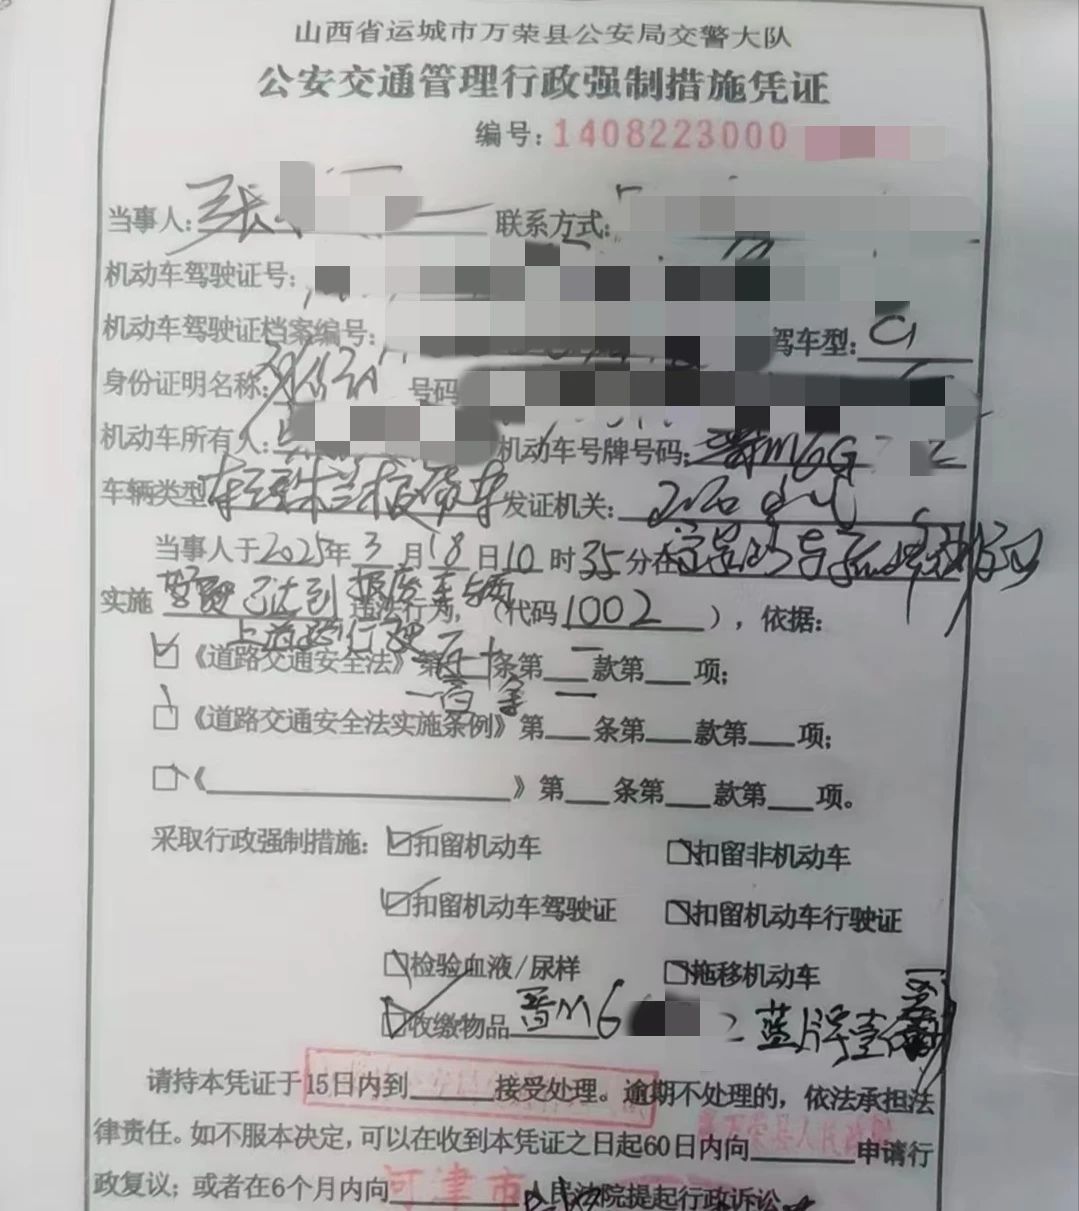 山西省运城市万荣县公安局交警大队
公安交通管理行政强制措施凭证
编号:1408223000
当事人:张 联系方式:
机动车驾驶证号:
机动车驾驶证档案编号: 驾车型:C1
身份证明名称: 号码
机动车所有人: 机动车号牌号码:晋M6G 2
车辆类型轻型栏板货车 发证机关:
当事人于2025年3月18日10时35分在
实施驾驶已达到报废车辆违法行为,(代码1002),依据:
上道路行驶
☑《道路交通安全法》第 条第 款第 项;
一百条一
□《道路交通安全法实施条例》第 条第 款第 项;
□《 》第 条第 款第 项。
采取行政强制措施:☑扣留机动车 □扣留非机动车
☑扣留机动车驾驶证 □扣留机动车行驶证
□检验血液/尿样 □拖移机动车
☑收缴物品晋M6 2蓝牌壹
请持本凭证于15日内到 接受处理。逾期不处理的,依法承担法
律责任。如不服本决定,可以在收到本凭证之日起60日内向万荣县人民政府申请行
政复议;或者在6个月内向河津市人民法院提起行政诉讼。